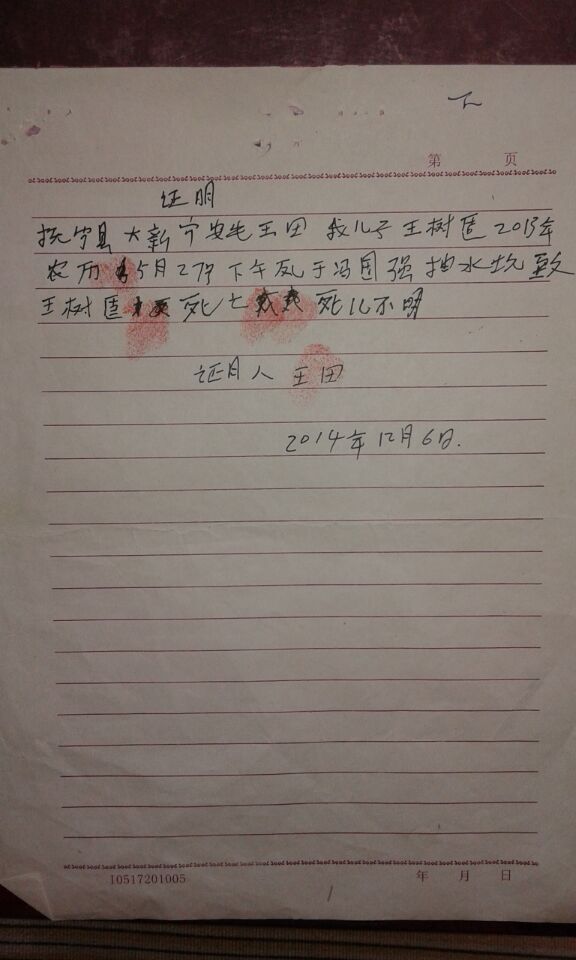 下
第 页
证明
抚宁县大新宁安毛王田 我儿子王树匡2013年
农历5月27下午死于冯国强抽水坑致
王树匡死亡 死儿不明
证月人 王田
2014年12月6日.
10517201005 年 月 日